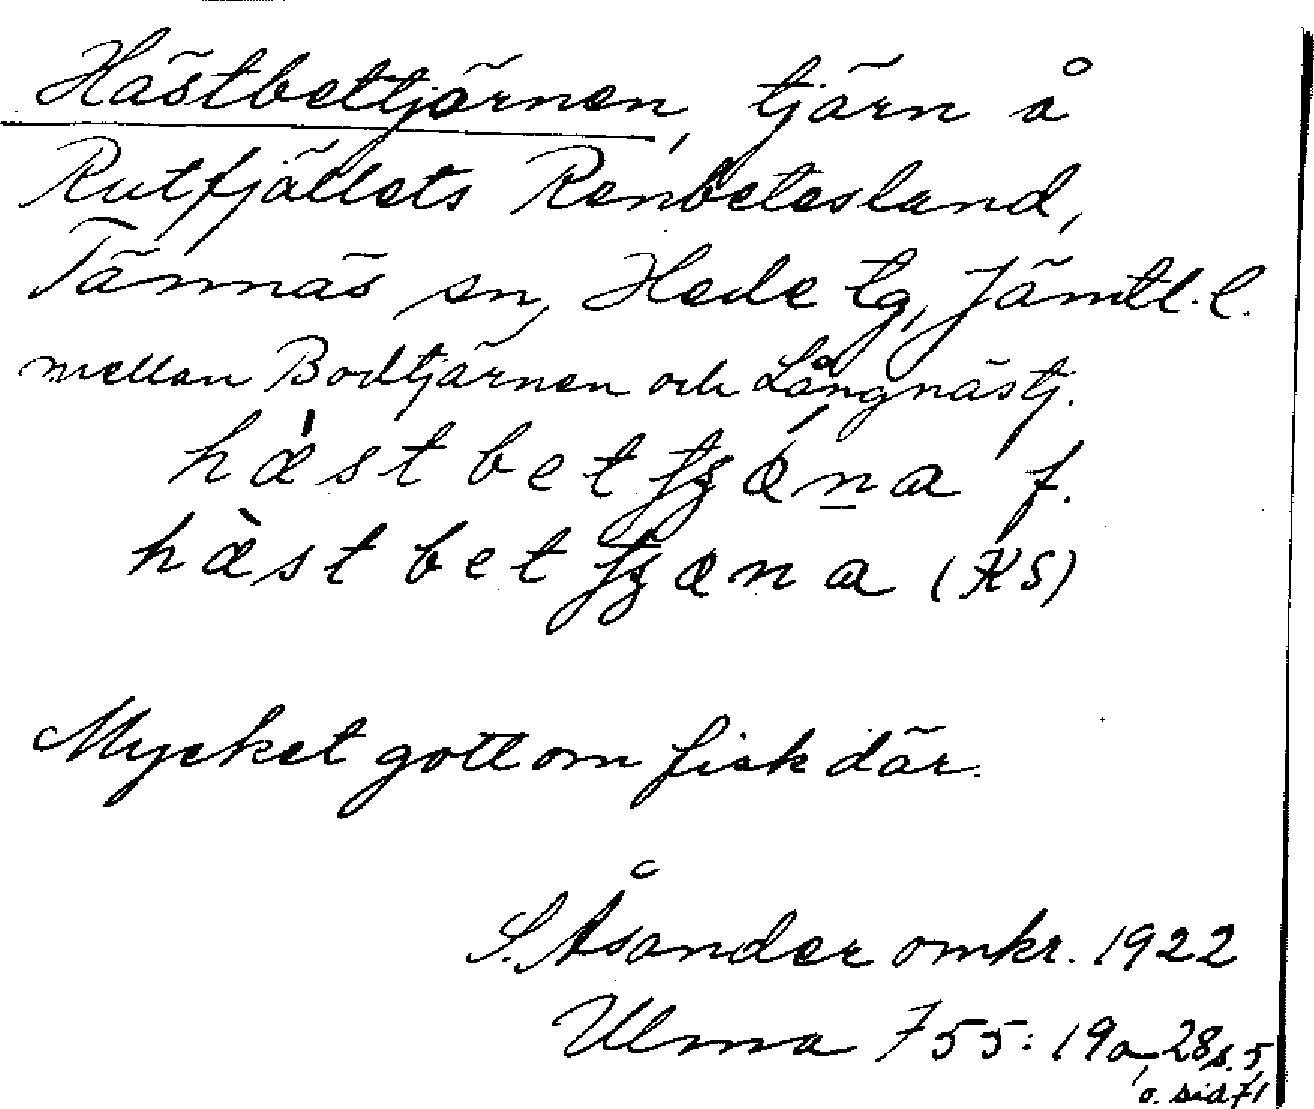 Hästbettjärnen, tjärn å
Rutfjällets Renbetesland,
Tännäs sn, Hede tg, Jämtl. l.
mellan Bodtjärnen och Långnästj.
hæ̀st bet tʃæ̀na f.
hæ̀st bet tʃæna (KS)
Mycket gott om fisk där.
S. Åsander omkr. 1922
Ulma 755: 19a, 28 s. 5,
o. sid 71